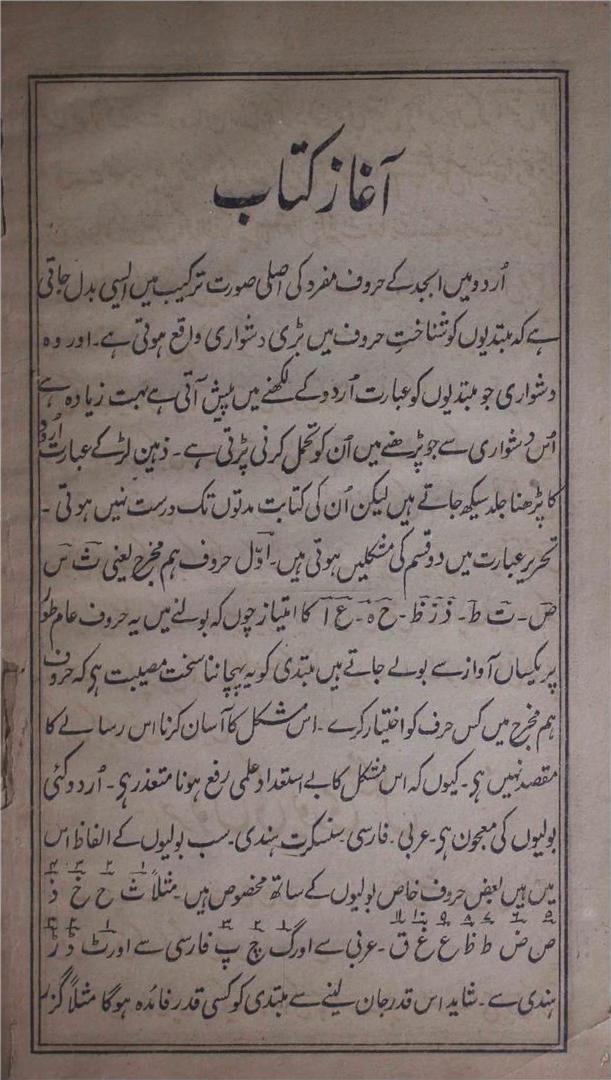 آغاز کتاب
اُردو میں ابجد کے حروف مفرد کی اصلی صورت ترکیب میں ایسی بدل جاتی
ہے کہ مبتدیوں کو شناختِ حروف میں بڑی دشواری واقع ہوتی ہے۔ اور وہ
دشواری جو مبتدیوں کو عبارت اُردو کے لکھنے میں پیش آتی ہے بہت زیادہ ہے
اُس دشواری سے جو پڑھنے میں اُن کو تحمل کرنی پڑتی ہے۔ ذہین لڑکے عبارت اُردو
کا پڑھنا جلد سیکھ جاتے ہیں لیکن اُن کی کتابت مدتوں تک درست نہیں ہوتی۔
تحریر عبارت میں دو قسم کی مشکلیں ہوتی ہیں۔ اوّل حروف ہم مخرج یعنی ث س
ص۔ ت ط۔ ذ ز ظ۔ ح ہ۔ ع ا کا امتیاز چوں کہ بولنے میں یہ حروف عام طور
پر یکساں آواز سے بولے جاتے ہیں مبتدی کو یہ پہچاننا سخت مصیبت ہی کہ حروف
ہم مخرج میں کس حرف کو اختیار کرے۔ اس مشکل کا آسان کرنا اس رسالے کا
مقصد نہیں ہی۔ کیوں کہ اس مشکل کا بے استعداد علمی رفع ہونا متعذر ہی۔ اُردو کئی
بولیوں کی معجون ہی۔ عربی۔ فارسی۔ سنسکرت۔ ہندی۔ سب بولیوں کے الفاظ اس
میں ہیں بعض حروف خاص بولیوں کے ساتھ مخصوص ہیں۔ مثلاً ث ح خ ذ
ص ض ط ظ ع غ ق۔ عربی سے اور گ چ پ فارسی سے اور ٹ ڈ ڑ
ہندی سے۔ شاید اس قدر جان لینے سے مبتدی کو کسی قدر فائدہ ہوگا مثلاً گزر